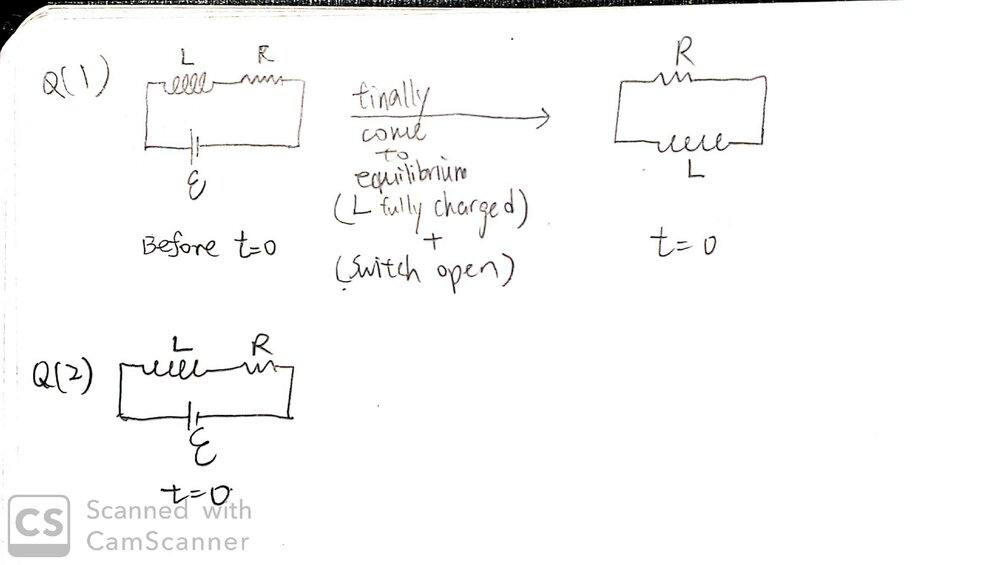 Q(1)
L R
ε
Before t=0
finally
come
to
equilibrium
(L fully charged)
+
(switch open)
R
L
t=0
Q(2)
L R
ε
t=0
CS Scanned with
CamScanner